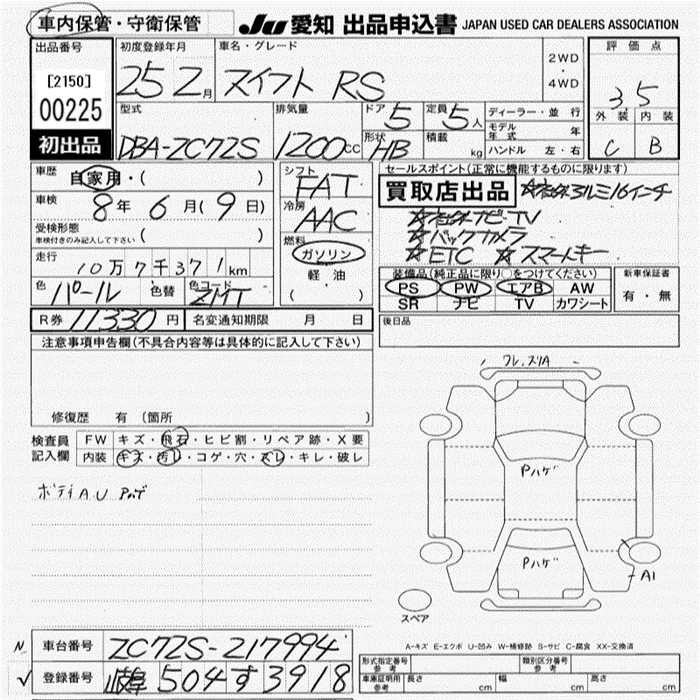 車内保管・守衛保管
JU 愛知 出品申込書 JAPAN USED CAR DEALERS ASSOCIATION
出品番号
[2150]
00225
初出品
初度登録年月
25 2月
車名・グレード
スイフト RS
2WD
・
4WD
評価点
3.5
外装 内装
C B
型式
DBA-ZC72S
排気量
1200cc
ドア 5
定員 5人
形状 HB
積載 kg
ディーラー・並行
モデル年式 年
ハンドル 左・右
車歴 自家用・( )
車検 8年 6月(9日)
受検形態
車検付きのみ記入して下さい ( )
走行 10万7千371km
色 パール 色替 色コード ZMT
シフト
FAT
冷房
AAC
燃料
ガソリン
軽油
( )
セールスポイント(正常に機能するものに限ります)
買取店出品 ☆社外アルミ16インチ
☆社外ナビ・TV
☆バックカメラ
☆ETC ☆スマートキー
装備品(純正品に限り○をつけてください)
PS PW エアB AW
SR ナビ TV カワシート
新車保証書
有・無
R券 11330円 名変通知期限 月 日
後日品
注意事項申告欄(不具合内容等は具体的に記入して下さい)
修復歴 有 (箇所 )
検査員記入欄
FW キズ・飛石・ヒビ割・リペア跡・X要
内装 キズ・汚レ・コゲ・穴・スレ・キレ・破レ
ボディ A U Pハゲ
フレ,スリA
Pハゲ
Pハゲ
A1
スペア
A-キズ E-エクボ U-凹み W-補修跡 S-サビ C-腐食 XX-交換済
N 車台番号 ZC72S-217994
✓ 登録番号 岐阜 504 す 3918
形式指定番号参考 類別区分番号参考
車庫証明用参考 長さ cm 幅 cm 高さ cm